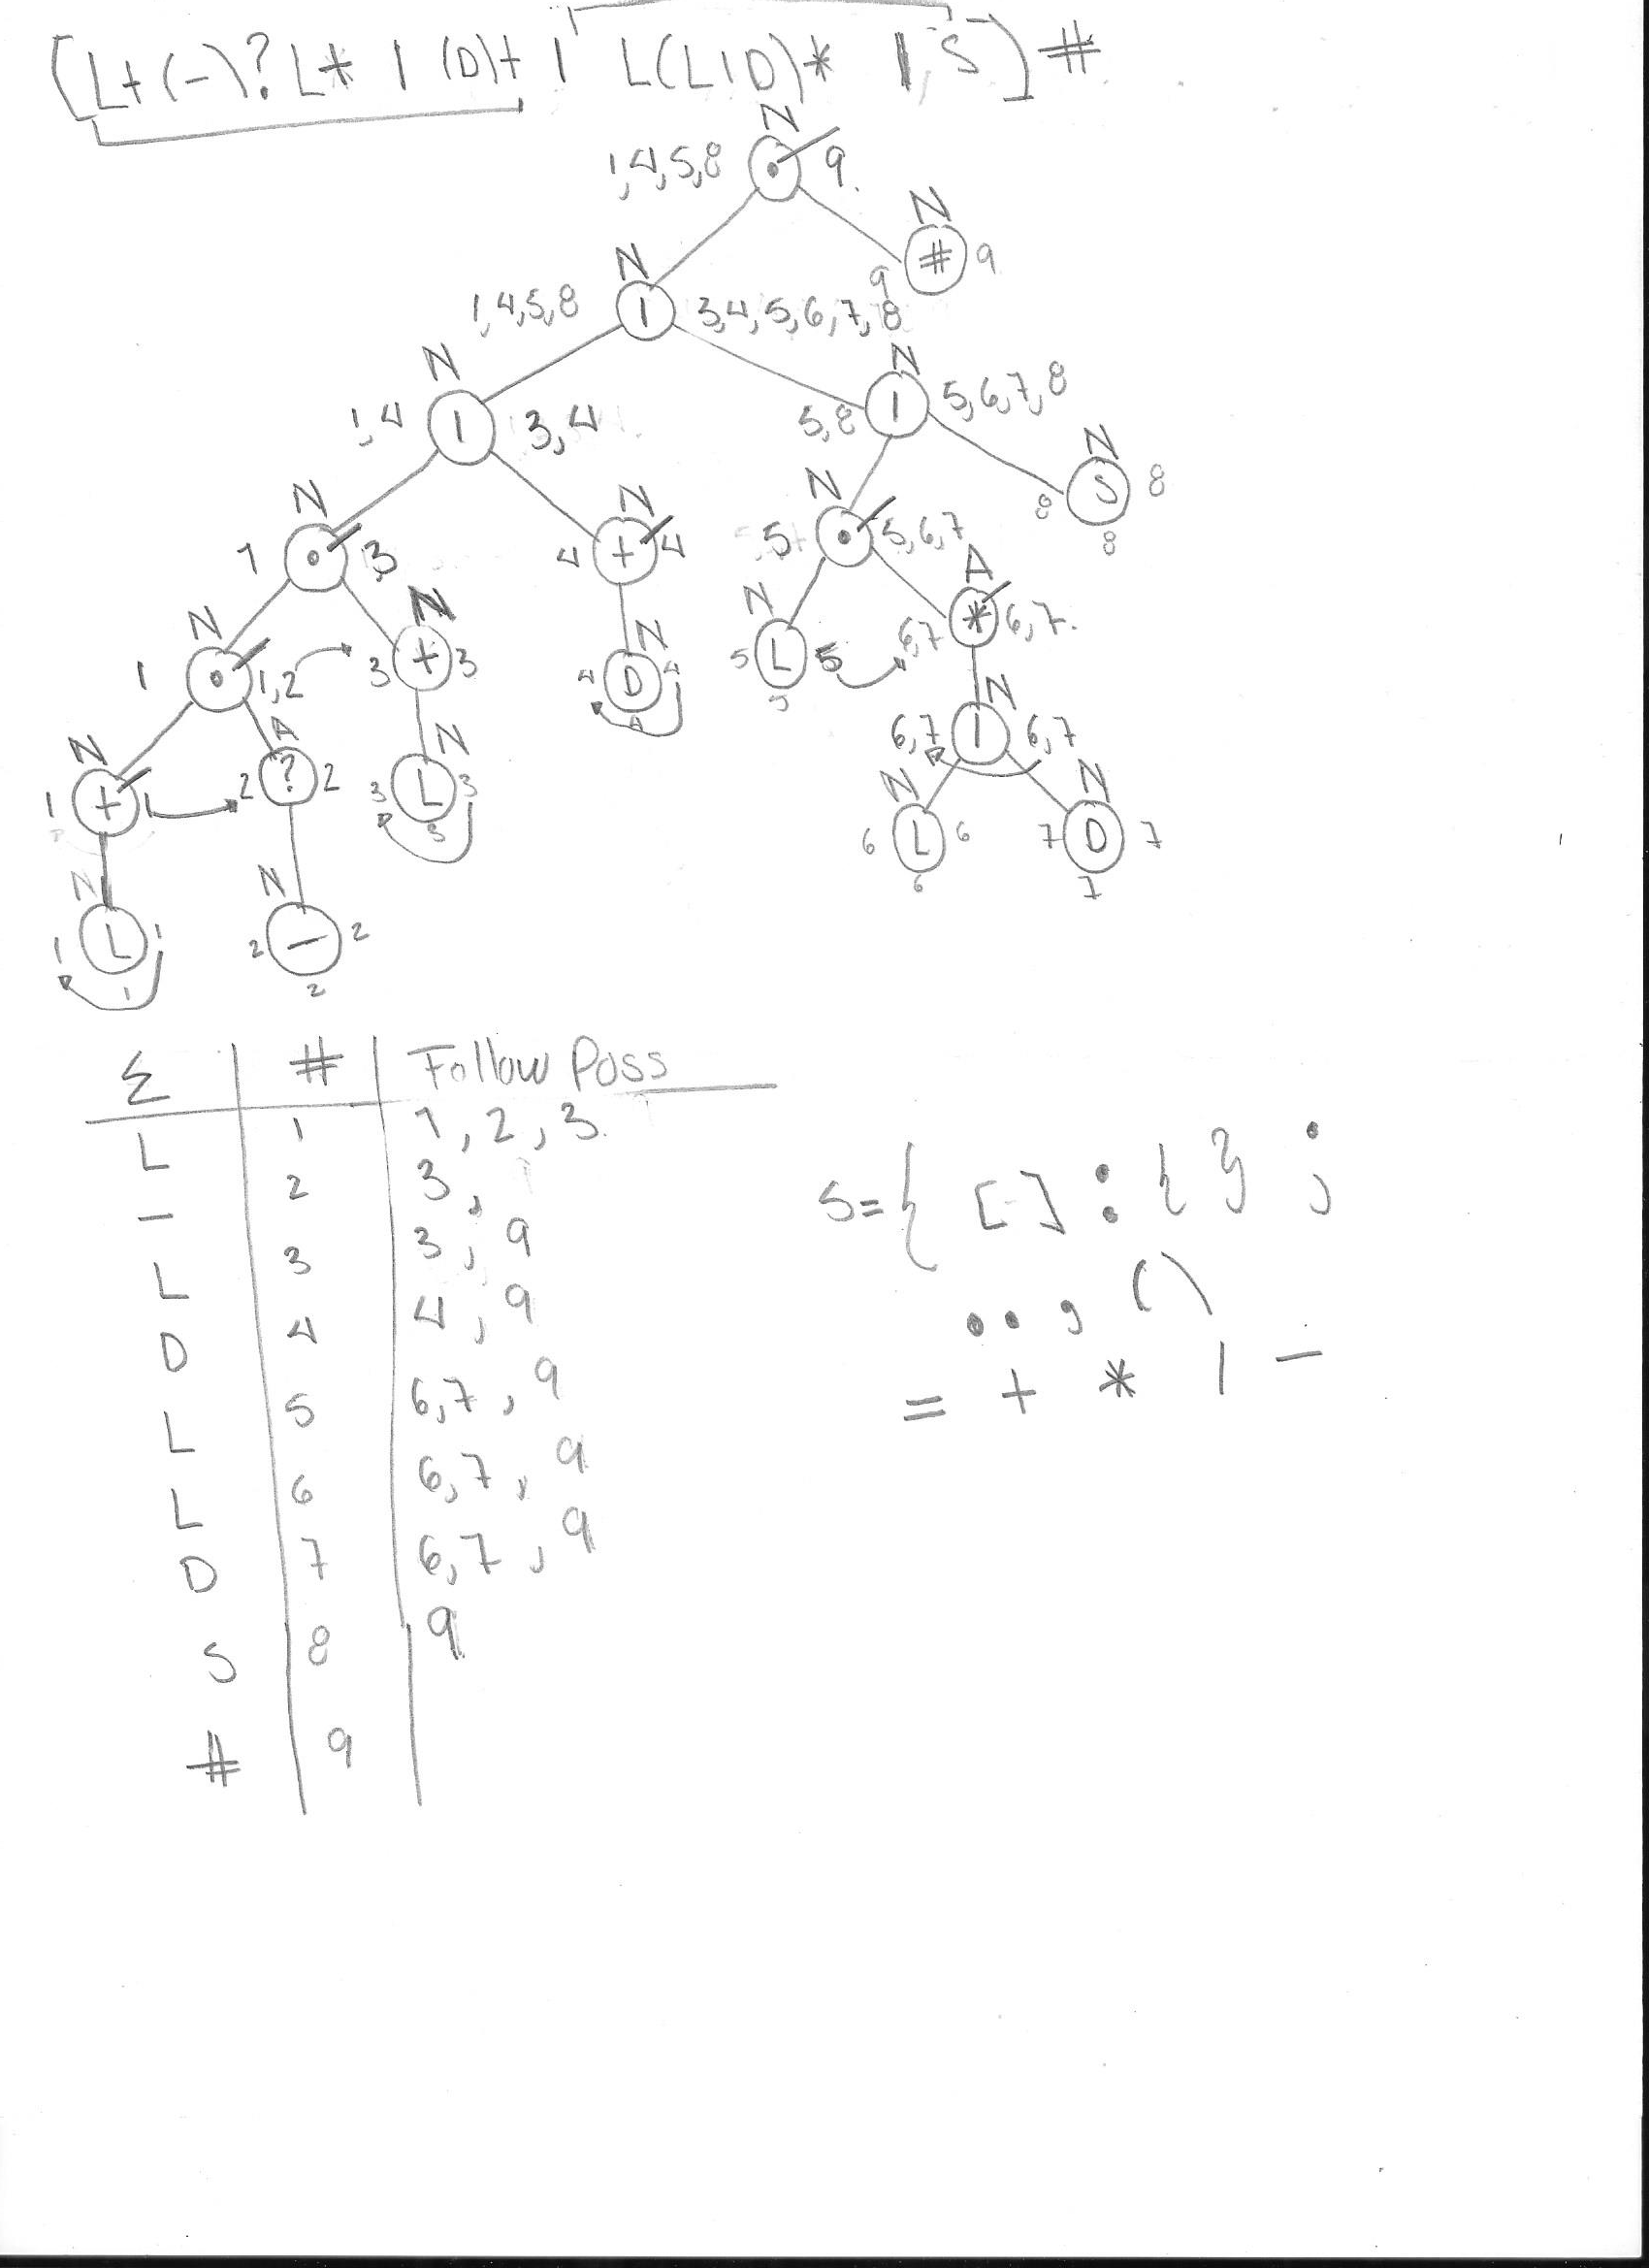 [L+(-)?L+ | (D)+ | L(L|D)* | S]#
N
1,4,5,8 • 9.
N
9 # 9
N
1,4,5,8 | 3,4,5,6,7,8
N
1,4 | 3,4
N
5,8 | 5,6,7,8
N
8 S 8
8
N
1 • 3
N
4 + 4
N
5 • 5,6,7
N
1 • 1,2
N
3 + 3
N
4 D 4
4
N
5 L 5
5
A
6,7 * 6,7.
N
1 + 1
A
2 ? 2
N
3 L 3
3
N
6,7 | 6,7
N
6 L 6
6
N
7 D 7
7
N
1 L 1
1
N
2 - 2
2
Σ # Follow Poss
L 1 1, 2, 3.
- 2 3,
L 3 3, 9
D 4 4, 9
L 5 6,7, 9
L 6 6,7, 9
D 7 6,7, 9
S 8 9
# 9
S={ [] : { } ;
. . , ( )
= + * | -